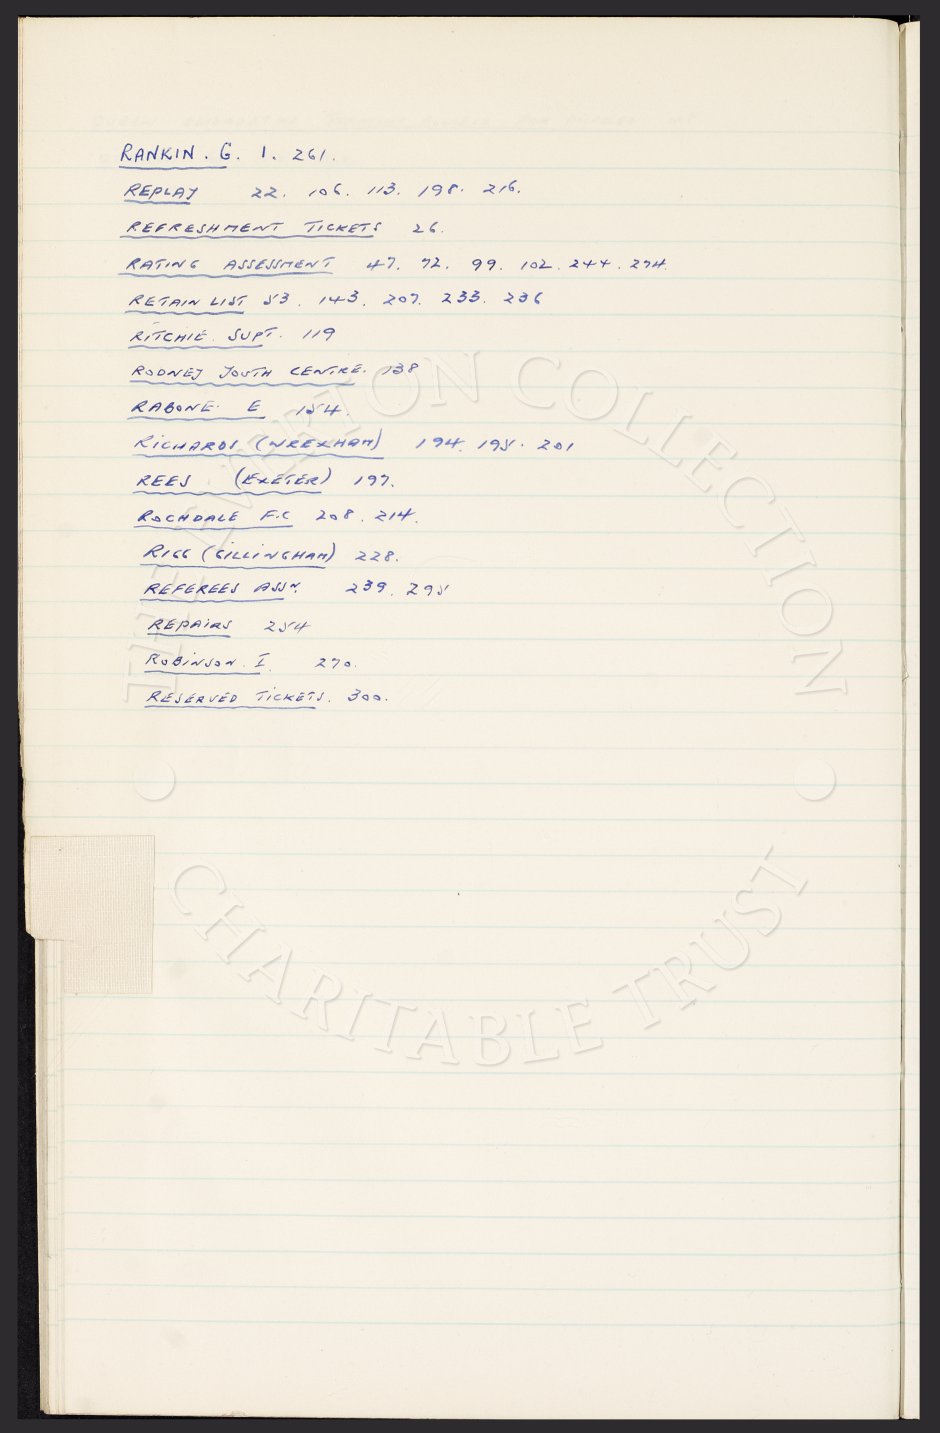 RANKIN. G. 1. 261.
REPLAY 22. 106. 113. 198. 216.
REFRESHMENT TICKETS 26.
RATING ASSESSMENT 47. 72. 99. 102. 244. 274.
RETAIN LIST 53. 143. 207. 233. 236
RITCHIE. SUPT. 119
RODNEY YOUTH CENTRE. 138
RABONE. E 154.
RICHARDS (WREXHAM) 194. 195. 201
REES (EXETER) 197.
ROCHDALE F.C 208. 214.
RIGG (GILLINGHAM) 228.
REFEREES ASSN. 239. 295
REPAIRS 254
ROBINSON. I. 270.
RESERVED TICKETS. 300.
THE EVERTON COLLECTION
CHARITABLE TRUST